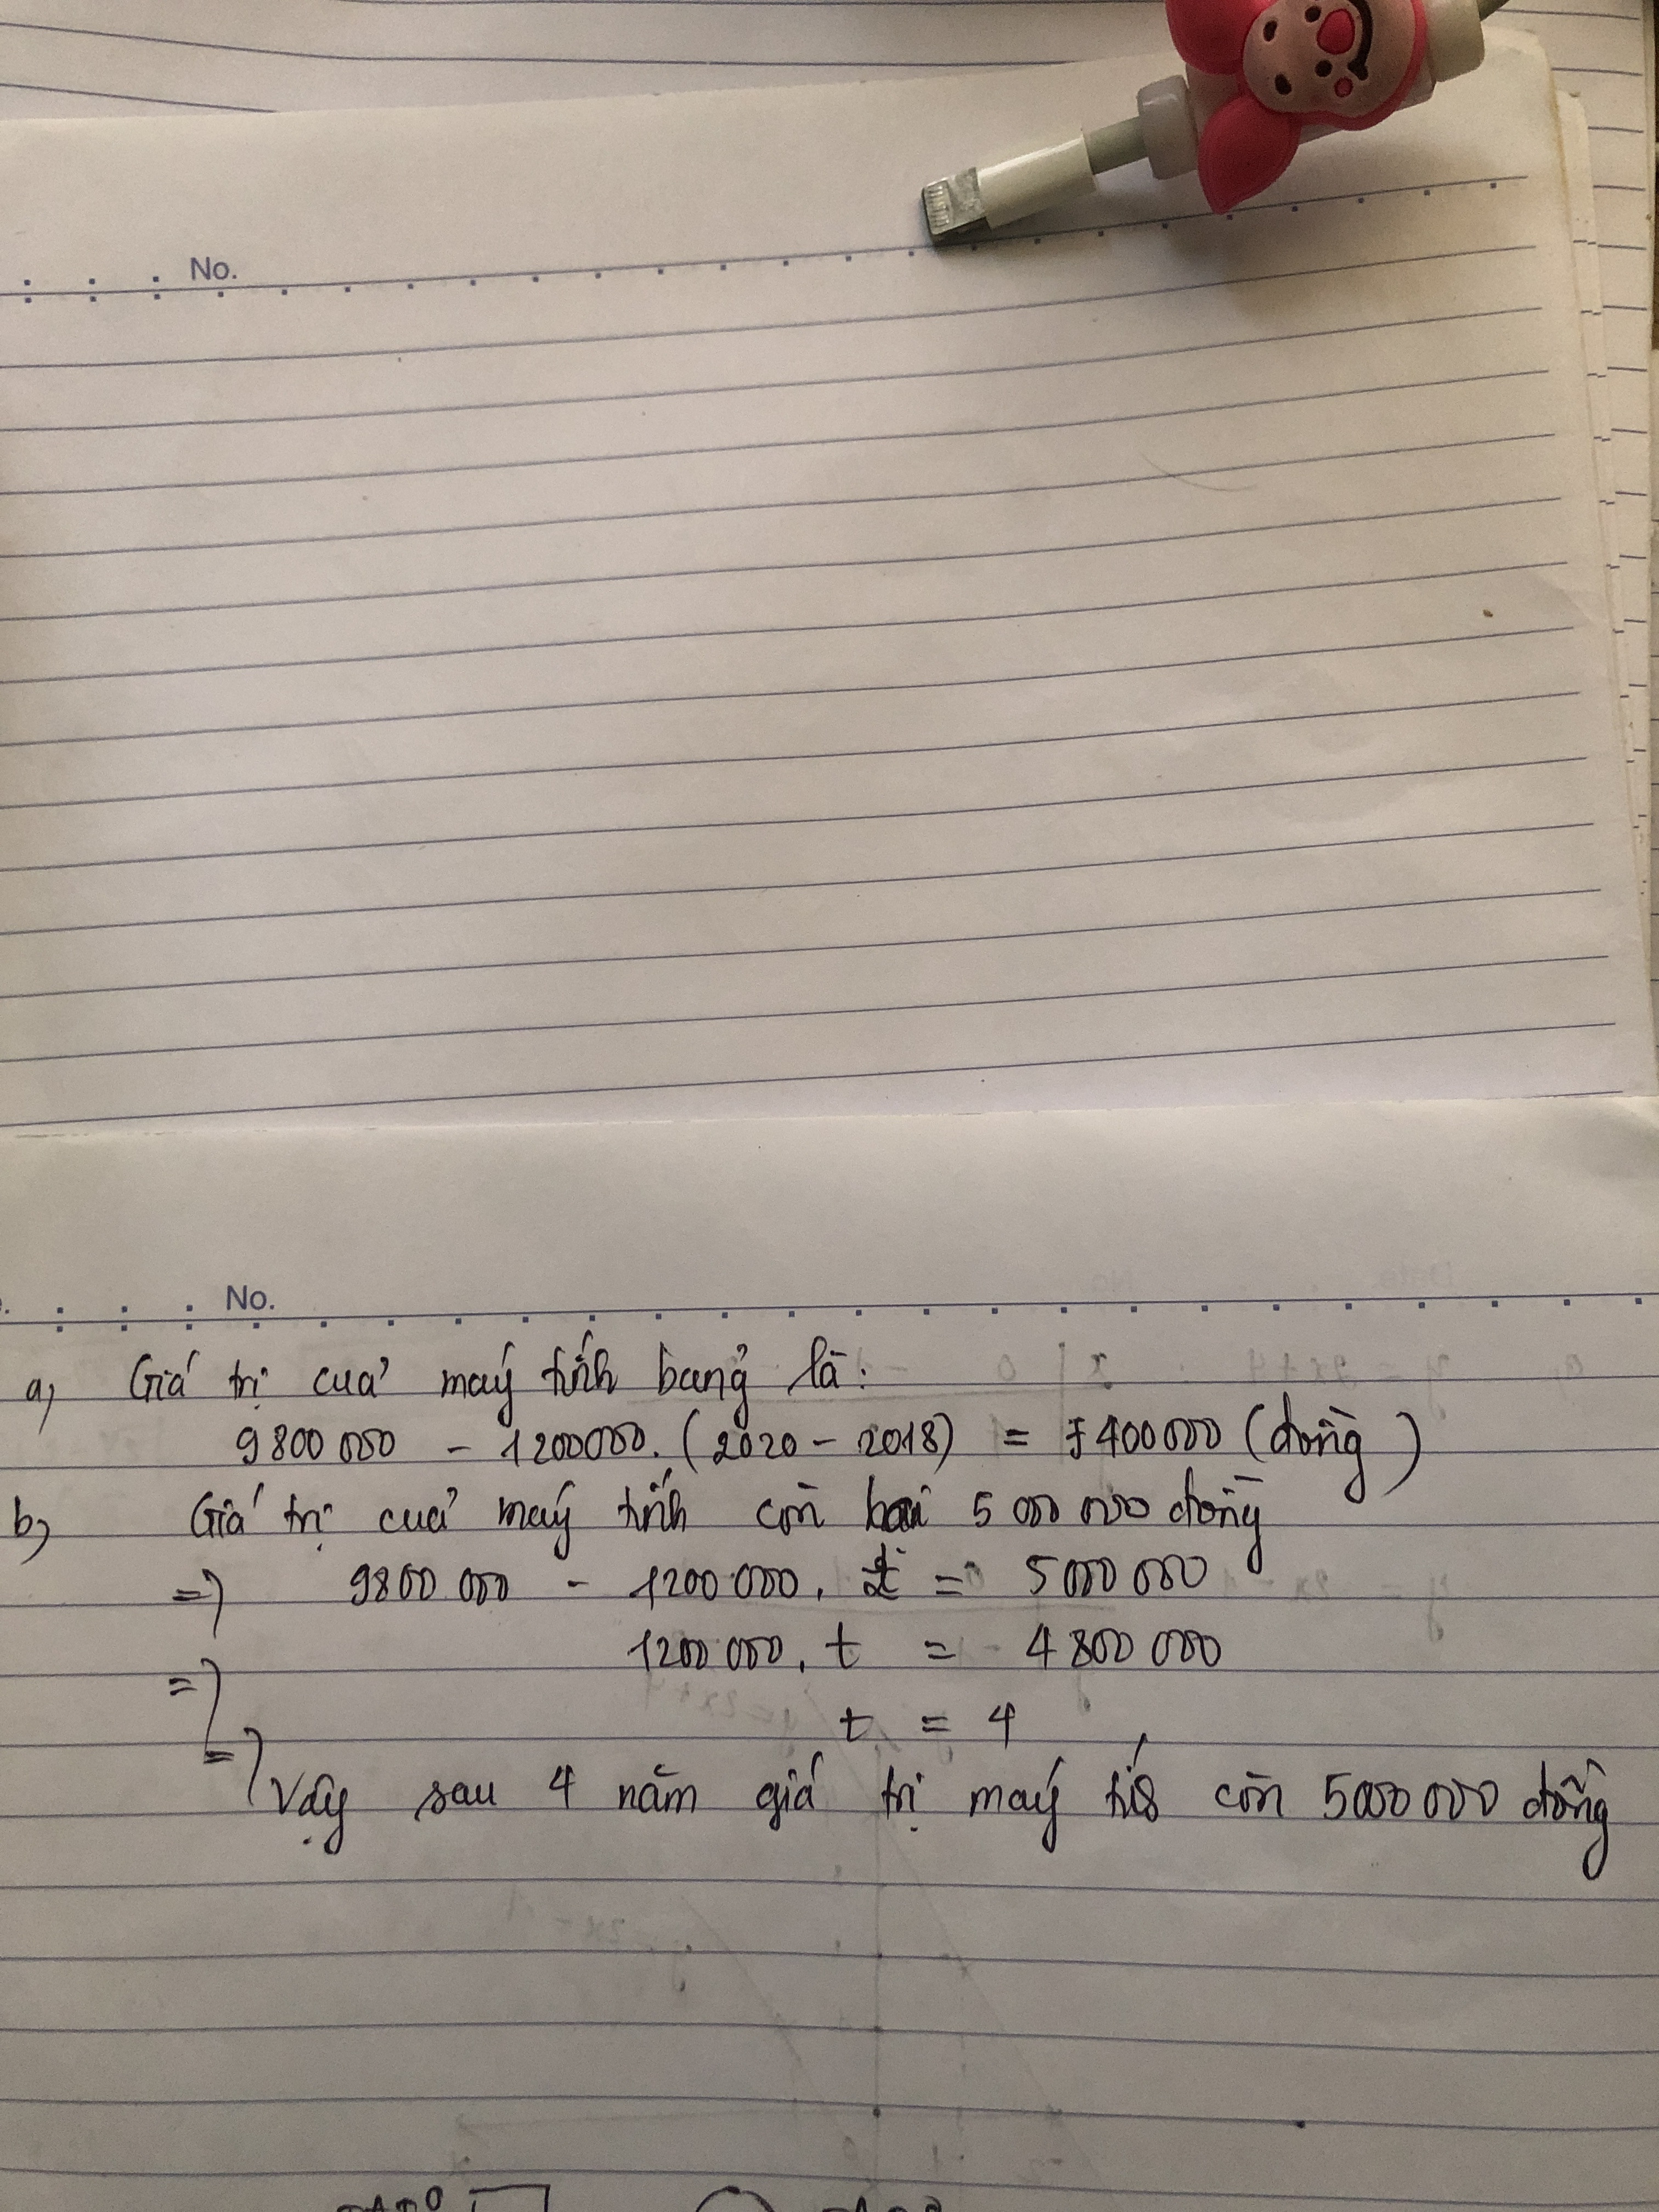 No.
No.
a, Giá trị của máy tính bảng là:
9800 000 - 1200000. (2020 - 2018) = 7400000 (đồng)
b, Giá trị của máy tính còn 5 000 000 đồng
=> 9800 000 - 1200 000. t = 5000 000
=> 1200 000. t = 4 800 000
=> t = 4
Vậy sau 4 năm giá trị máy còn 5000 000 đồng